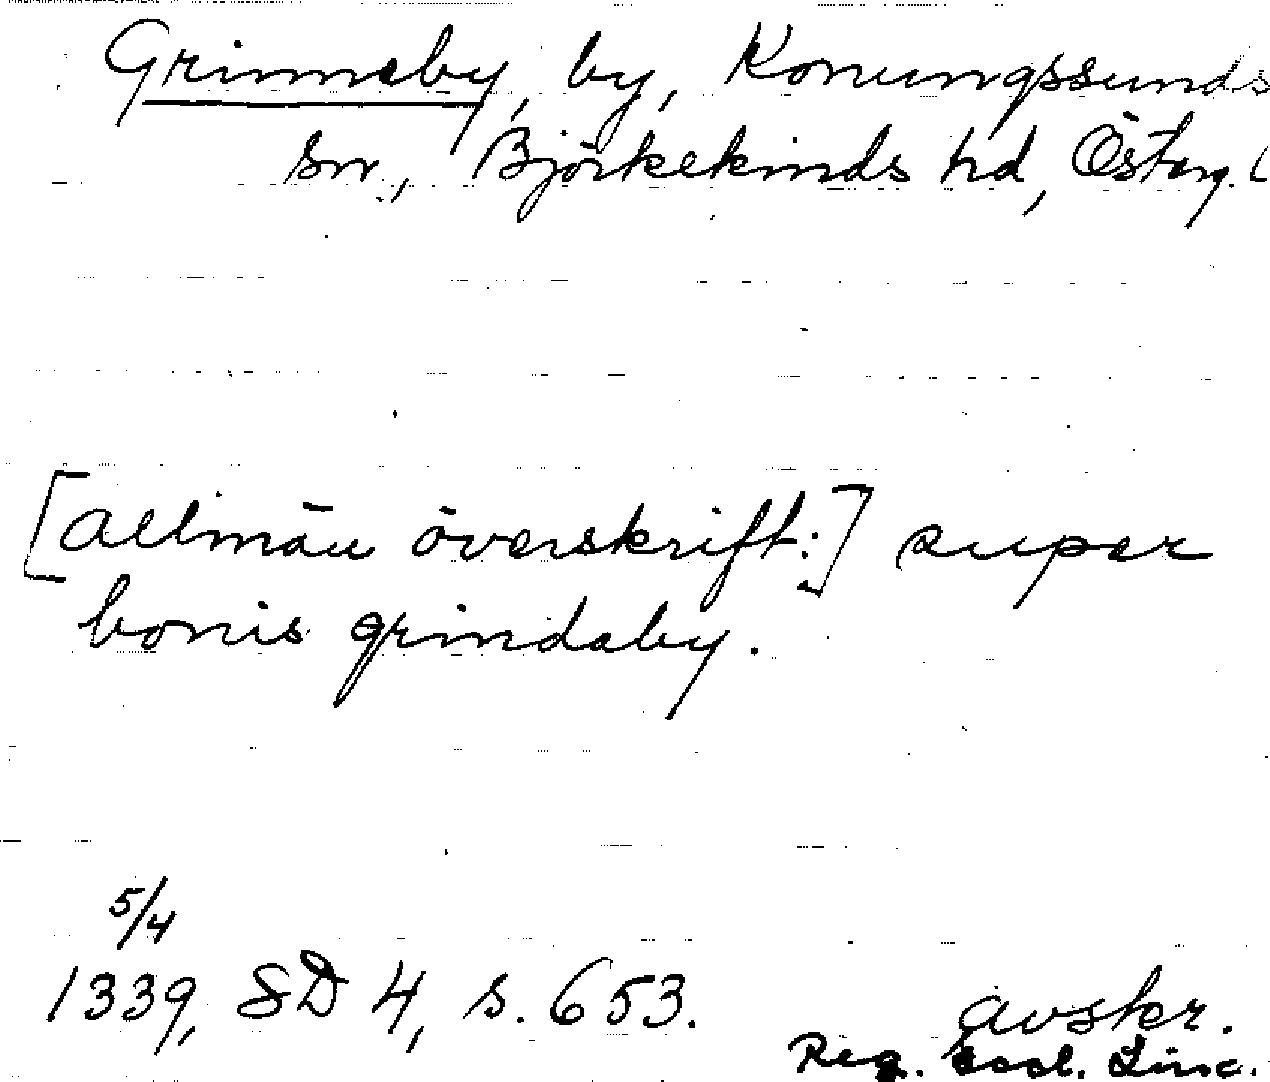 Grinneby, by, Konungssunds
sn., Björkekinds hd, Österg. l
[allmän överskrift:] super
bonis grindaby.
5/4
1339, SD 4, s. 653.
avskr.
Reg. Eccl. Linc.